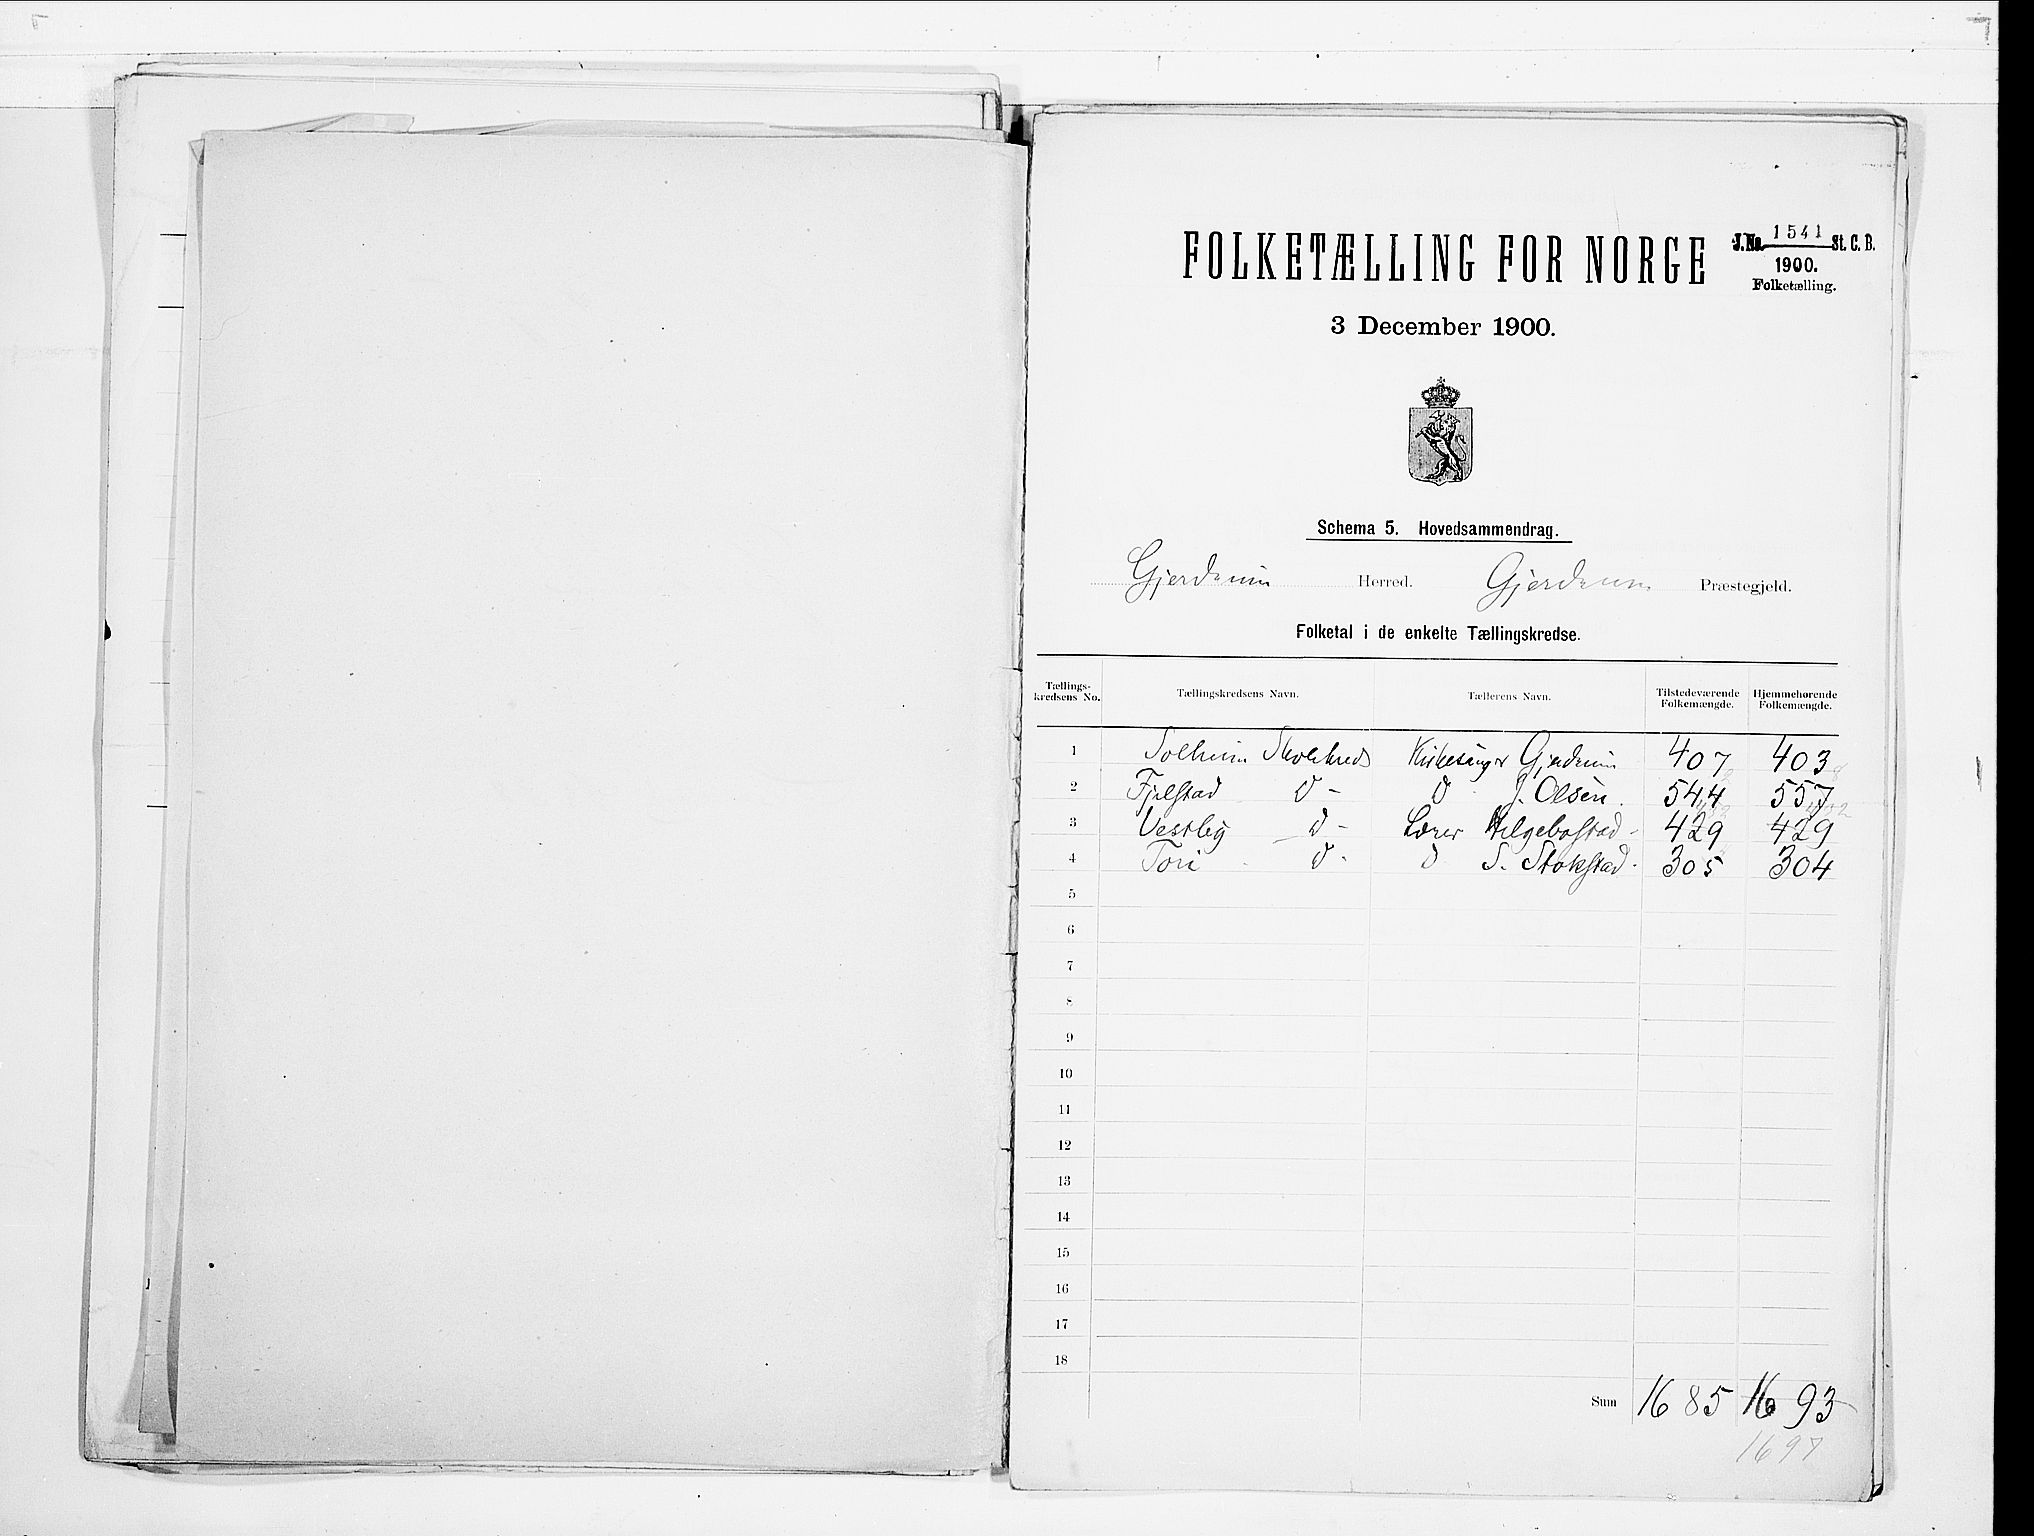 FOLKETÆLLING FOR NORGE
J.No. 1541 St. C. B.
1900.
Folketælling.
3 December 1900.
Schema 5. Hovedsammendrag.
Gjerdrum Herred. Gjerdrum Præstegjeld.
Folketal i de enkelte Tællingskredse.
Tællings-kredsens No. Tællingskredsens Navn. Tællerens Navn. Tilstedeværende Folkemængde. Hjemmehørende Folkemængde.
1 Solheim Skolekreds Kirkesanger Gjerdrum 407 403
2 Fjelstad D - D J. Olsen. 544 557
3 Vestby D - Lærer Helgebostad 429 429
4 D - D S. Stokstad. 305 304
5
6
7
8
9
10
11
12
13
14
15
16
17
18
Sum 1685 1693
1697